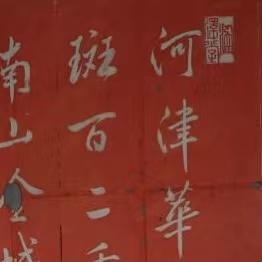 河津華
斑百二
南山金城